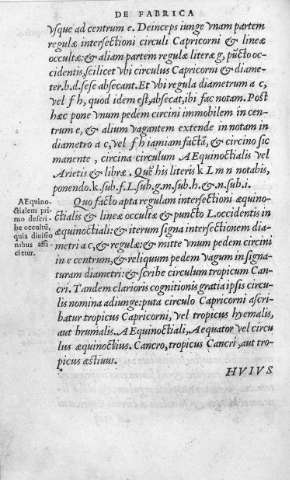 DE FABRICA
vsque ad centrum e. Deinceps iunge vnam partem
regulæ intersectioni circuli Capricorni & lineæ
occultæ: & aliam partem regulæ literæ g, pũcto oc-
cidentis, scilicet vbi circulus Capricorni & diame-
ter.b.d. sese abscẽcant. Et vbi regula diametrum a c,
vel f h, quod idem est, absecat, ibi fac notam. Post
hæc pone vnum pedem circini immobilem in cen-
trum e, & alium vagantem extende in notam in
diametro a c, vel f h iamiam factã, & circino sic
manente, circina circulum AEquinoctialis vel
Arietis & libræ. Quẽ his literis k L m n notabis,
ponendo.k.sub.f.L.sub.g.m.sub.h.& n.sub.i.
Quo facto apta regulam intersectioni æquino-
ctialis & lineæ occultæ & puncto L. occidentis in
æquinoctiali: & iterum signa intersectionem diame-
tri a c, & regulæ: & mitte vnum pedem circini
in e centrum, & reliquum pedem vagum in signa-
turam diametri: & scribe circulum tropicum Can-
cri. Tandem clarioris cognitionis gratia ipsis circu-
lis nomina adiunge: puta circulo Capricorni ascri-
batur tropicus Capricorni, vel tropicus hyemalis,
aut brumalis. AEquinoctiali, AEquator vel circu
lus æquinoctius. Cancro, tropicus Cancri, aut tro-
picus æstiuus.
AEquino-
ctialem pri
mo descri-
be occultè,
quia diuisio
nibus affi-
cietur.
HVIVS